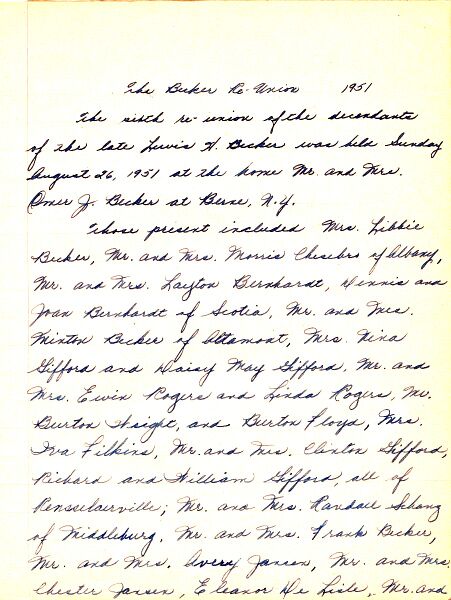 The Becker Re-Union 1951
The sixth re-union of the decendants
of the late Lewis H. Becker was held Sunday
August 26, 1951 at the home Mr. and Mrs.
Omer J. Becker at Berne, N.Y.
Those present included Mrs. Libbie
Becker, Mr. and Mrs. Morris Chesebro of Albany,
Mr. and Mrs. Layton Bernhardt, Dennis and
Joan Bernhardt of Scotia, Mr. and Mrs.
Minton Becker of Altamont, Mrs. Nina
Gifford and Daisy May Gifford, Mr. and
Mrs. Ewin Rogers and Linda Rogers, Mr.
Burton and Burton Floyd, Mrs.
Iva Filkins, Mr. and Mrs. Clinton Gifford,
Richard and William Gifford, all of
Rensselaerville; Mr. and Mrs. Randall Schanz
of Middleburg, Mr. and Mrs. Frank Becker,
Mr. and Mrs. Avery Janson, Mr. and Mrs.
Chester Jansen, Eleanor De Lisle, Mr. and